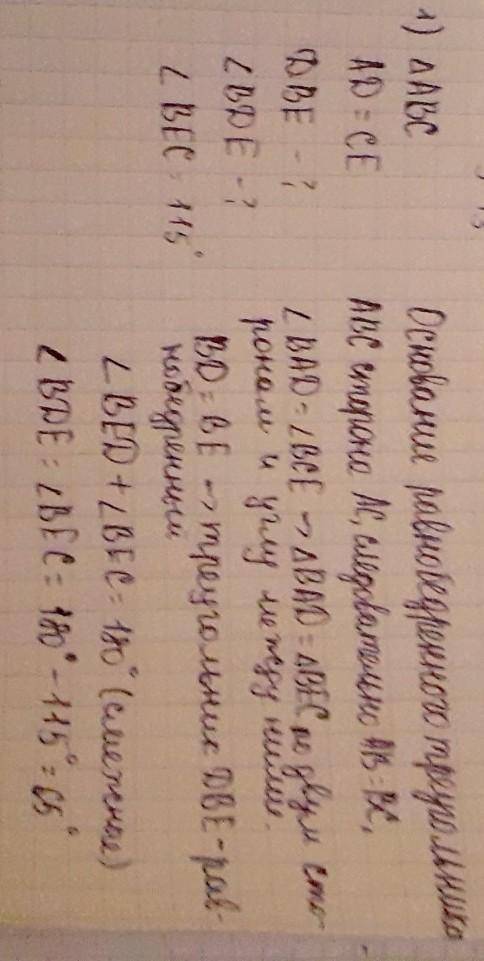 1) △ABC
AD = CE
DBE - ?
∠BDE - ?
∠BEC = 115°
Основание равнобедренного треугольника
ABC сторона AC, следовательно AB = BC,
∠BAD = ∠BCE → △BAD = △BEC по двум сто-
ронам и углу между ними.
BD = BE → треугольник DBE - рав-
нобедренный
∠BED + ∠BEC = 180° (смежные)
∠BDE = ∠BEC = 180° - 115° = 65°